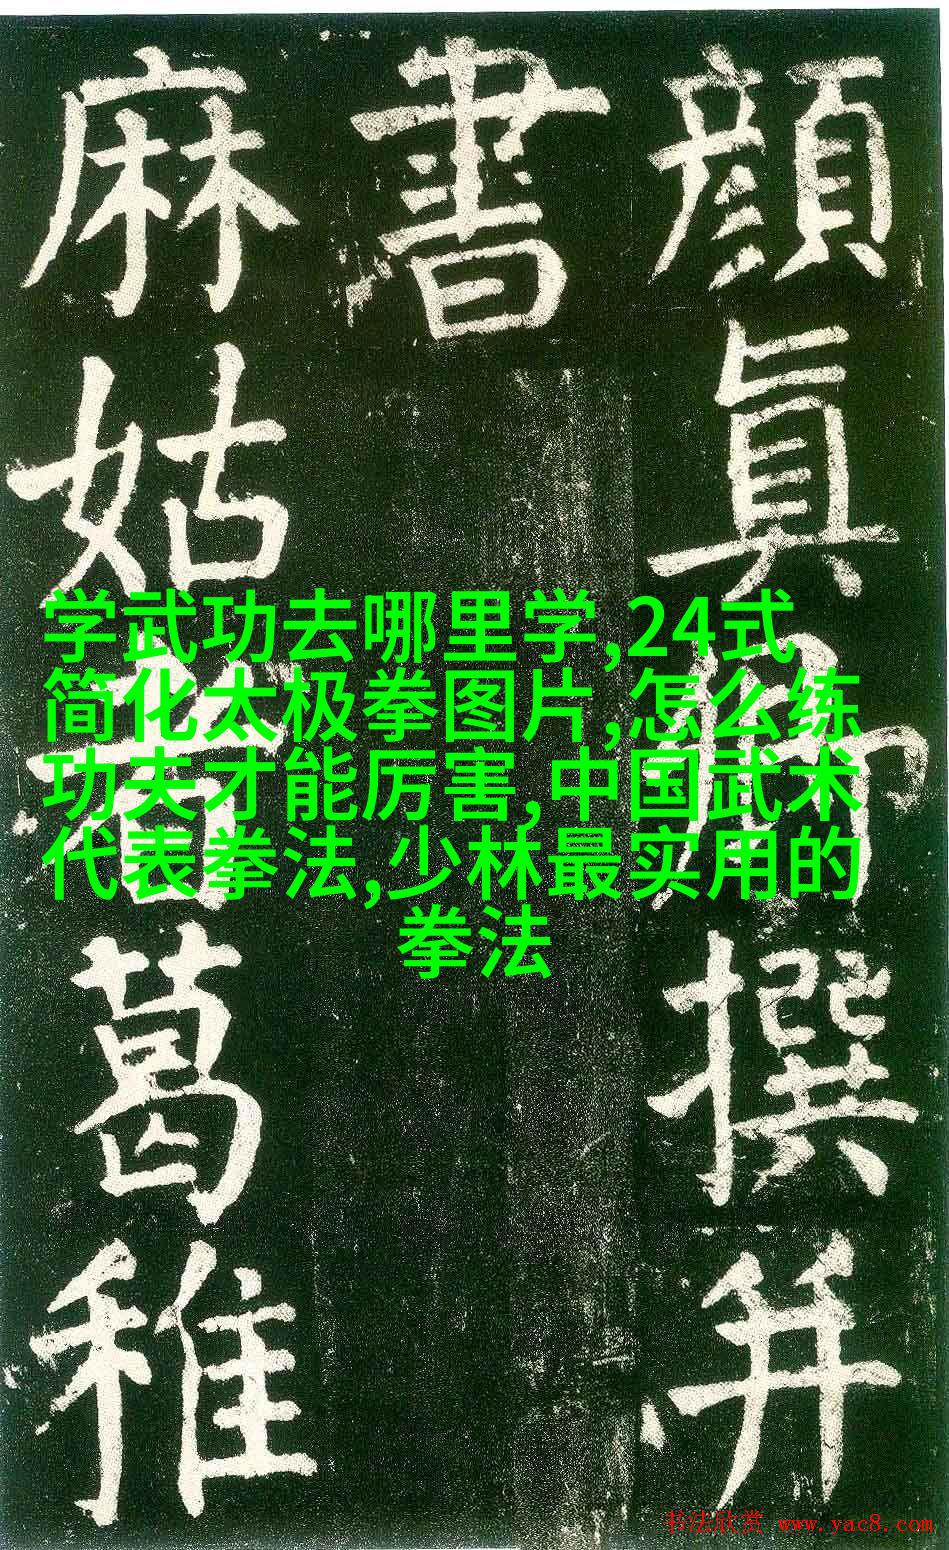 顔眞卿撰并
書
麻姑者葛稚
学武功去哪里学,24式
简化太极拳图片,怎么练
功夫才能厉害,中国武术
代表拳法,少林最实用的
拳法
书法欣赏 www.yac8.com